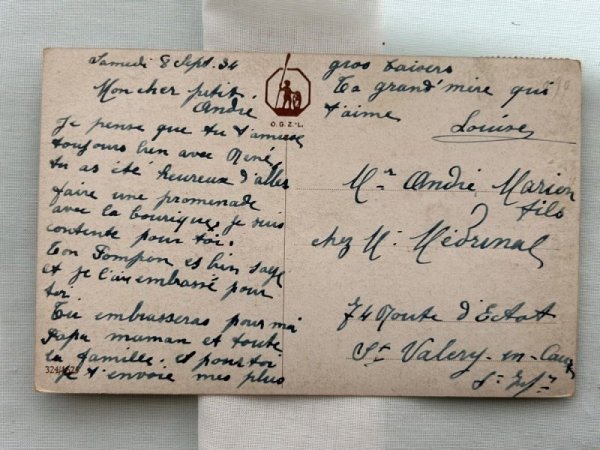 Samedi 8 Sept. 34
Mon cher petit
André
Je pense que tu t'amuse
toujours bien avec René,
tu as été heureux d'aller
faire une promenade
avec la bourique, je suis
contente pour toi.
Ton Pompon est bien sage
et je l'ai embrassé pour
toi
Tu embrasseras pour moi
papa maman et toute
la famille. et pour toi
je t'envoie mes plus
gros baisers
Ta grand'mère qui
t'aime
Louise
O.G.Z.-L.
Mr André Marion
fils
chez M. Médrinal
74 Route d'Ectot
St Valery-en-Caux
Sne Infre